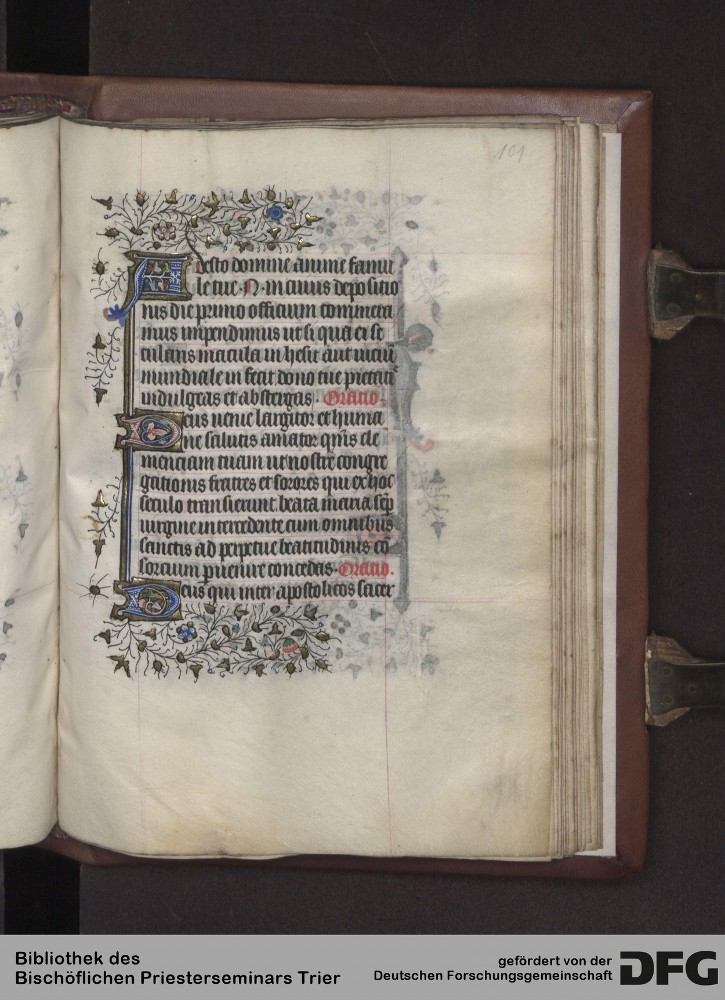 101
Adesto domine anime famu
le tue .N. in cuius depositio
nis die primo officium commera
mus impendimus ut si qua ei se
cularis macula in hesit aut uiciū
mundiale in fecit dono tue pietatis
indulgeas et abstergas. Oratio.
Deus uenie largitor et huma
ne salutis amator qm̄s cle
menciam tuam ut nostre congre
gationis fratres et sorores qui ex hoc
seculo transierunt beata maria sēp
uirgine intercedente cum omnibus
sanctis ad perpetue beatitudinis cō
sorcium puenire concedas. Oratio.
Deus qui inter apostolicos sacer
Bibliothek des
Bischöflichen Priesterseminars Trier
gefördert von der
Deutschen Forschungsgemeinschaft
DFG